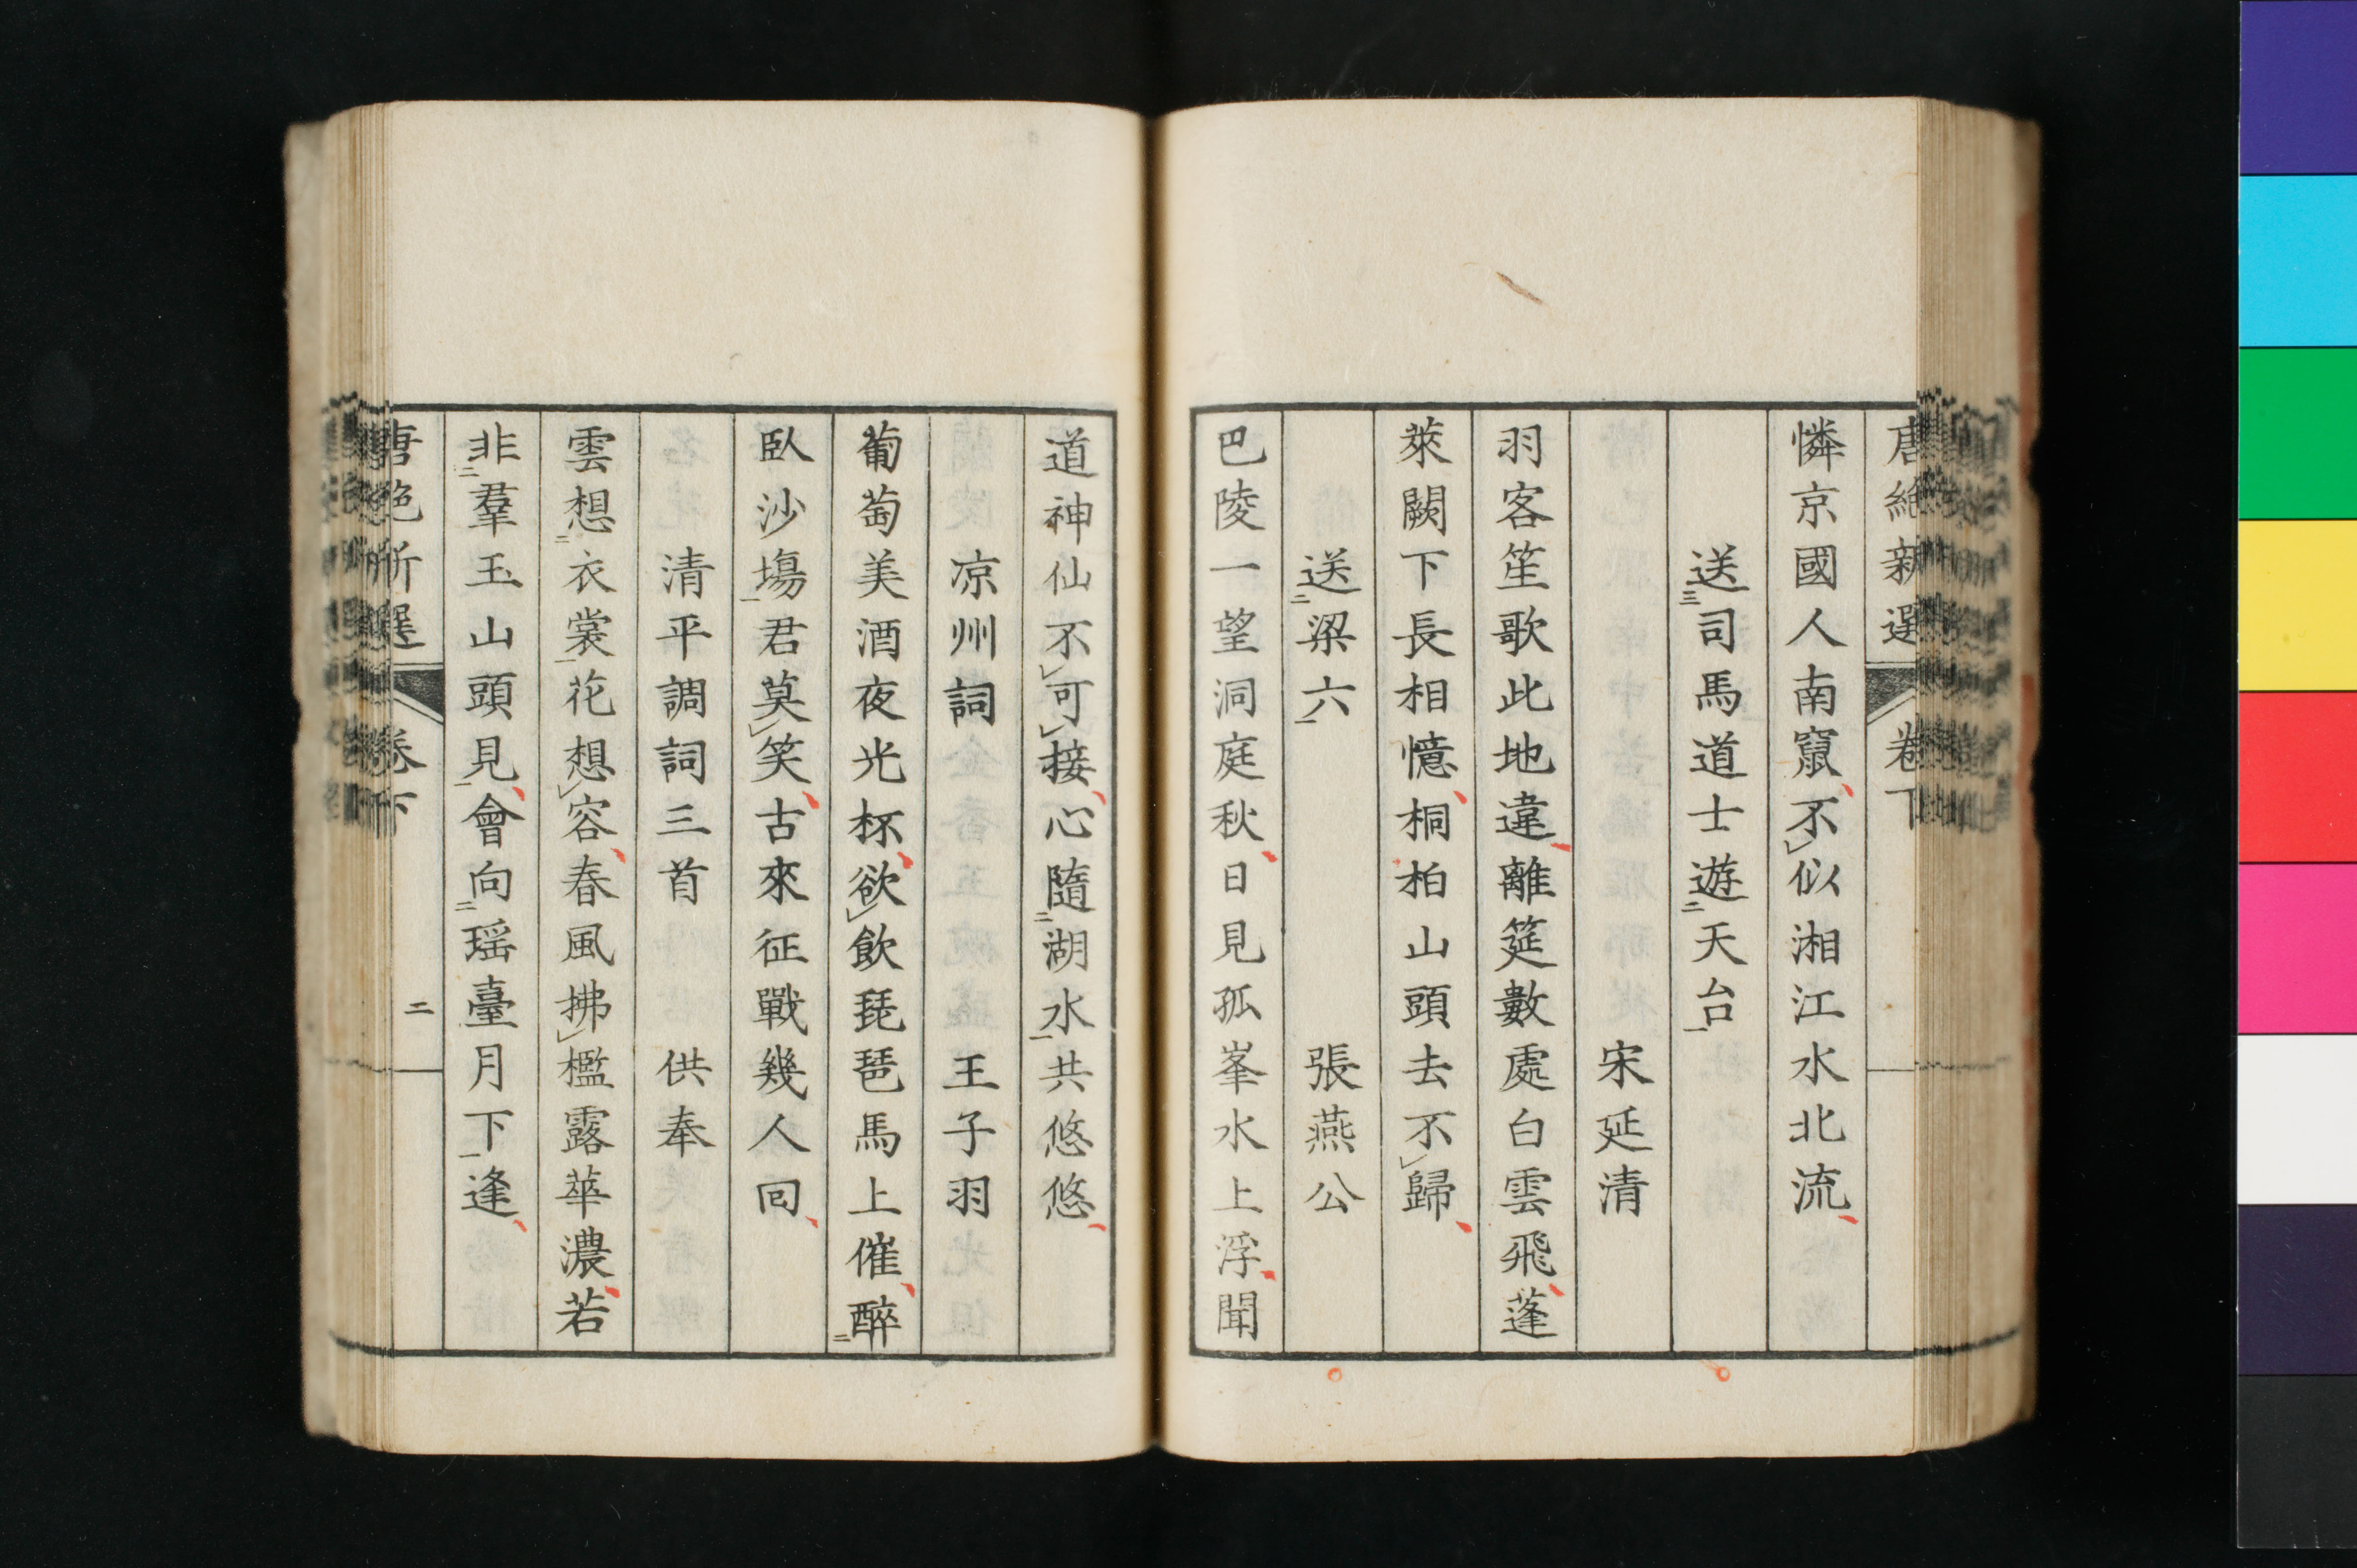 唐絶新選 卷下
憐京國人南竄不似湘江水北流
送司馬道士遊天台
宋延清
羽客笙歌此地違離筵數處白雲飛蓬
萊闕下長相憶桐柏山頭去不歸
送梁六 張燕公
巴陵一望洞庭秋日見孤峯水上浮聞
道神仙不可接心隨湖水共悠悠
凉州詞 王子羽
葡萄美酒夜光杯欲飲琵琶馬上催醉
臥沙塲君莫笑古來征戰幾人回
清平調詞三首 供奉
雲想衣裳花想容春風拂檻露華濃若
非羣玉山頭見會向瑶臺月下逢
唐絶新選 卷下 二